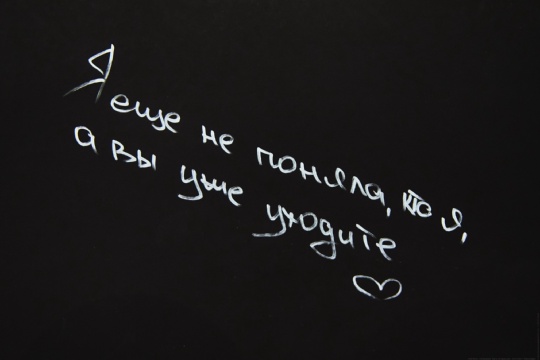 Я еще не поняла, кто я,
а вы уже уходите